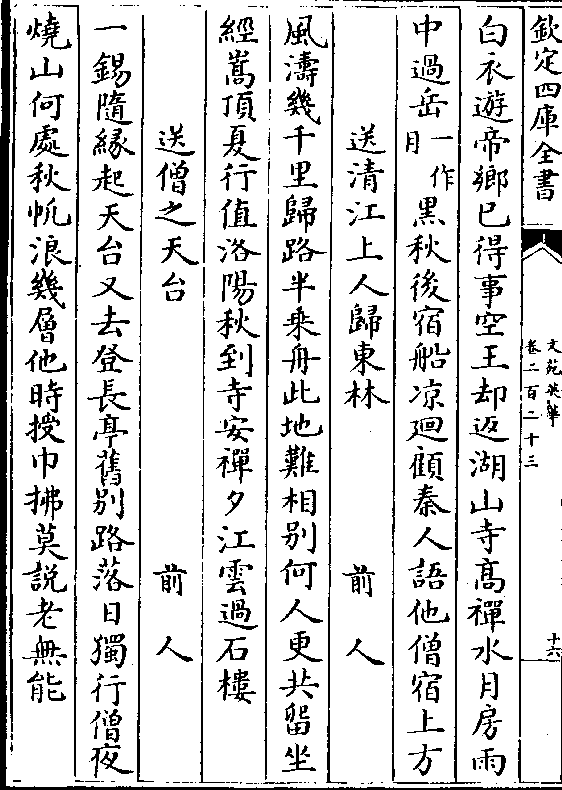 欽定四庫全書
文苑英華
卷二百二十三
十六
白衣遊帝鄉已得事空王却返湖山寺高禪水月房雨
中過岳一作月黒秋後宿船凉廻顧秦人語他僧宿上方
送清江上人歸東林
前人
風濤幾千里歸路半乗舟此地難相别何人更共留坐
經嵩頂夏行值洛陽秋到寺安禪夕江雲過石樓
送僧之天台
前人
一錫隨緣起天台又去登長亭舊别路落日獨行僧夜
燒山何處秋帆浪幾層他時授巾拂莫説老無能